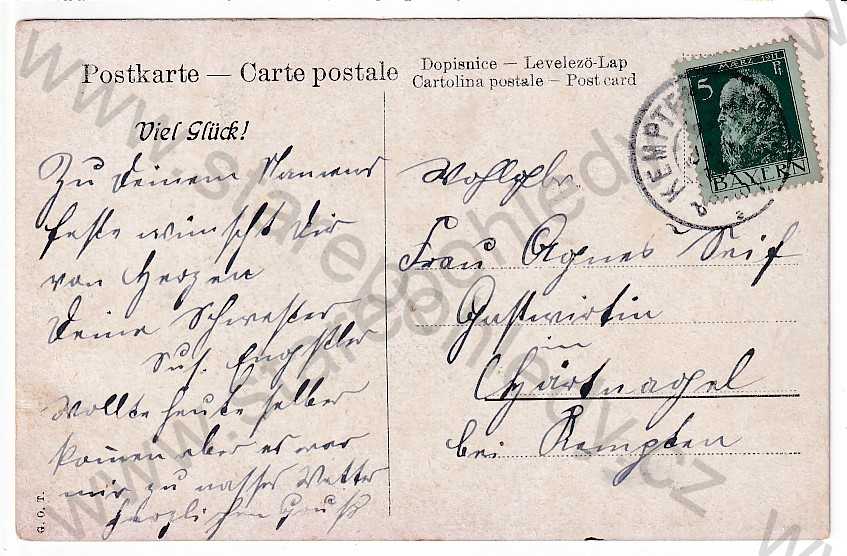 Postkarte — Carte postale
Dopisnice — Levelező-Lap
Cartolina postale — Post card
Viel Glück!
Zu Deinem Namens
feste wünscht Dir
von Herzen
Deine Schwester
Engstler
Wollte heute selber
kommen aber es war
mir zu nasses Wetter
herzlichen Gruß
G. O. T.
MÄRZ 1911
5 Pf
BAYERN
KEMPTE
Wohlgeb.
Frau Agnes Seif
Gastwirtin
in
Härtnagel
bei Kempten
www.starepohledy.cz